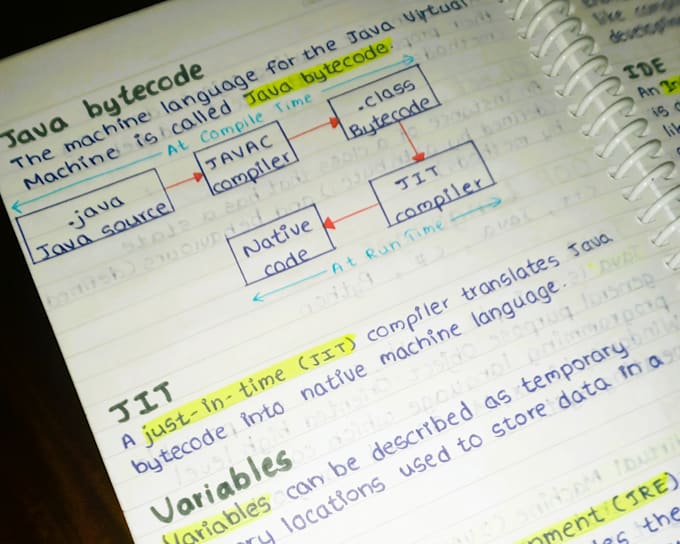 Java bytecode
The machine language for the Java Virtual
Machine is called Java bytecode.
At Compile Time
.java
Java source
JAVAC
compiler
.class
Bytecode
JIT
compiler
Native
code
At Run Time
JIT
A just-in-time (JIT) compiler translates Java
bytecode into native machine language.
Variables
Variables can be described as temporary
locations used to store data in a
(JRE)
the
like
IDE
An
is